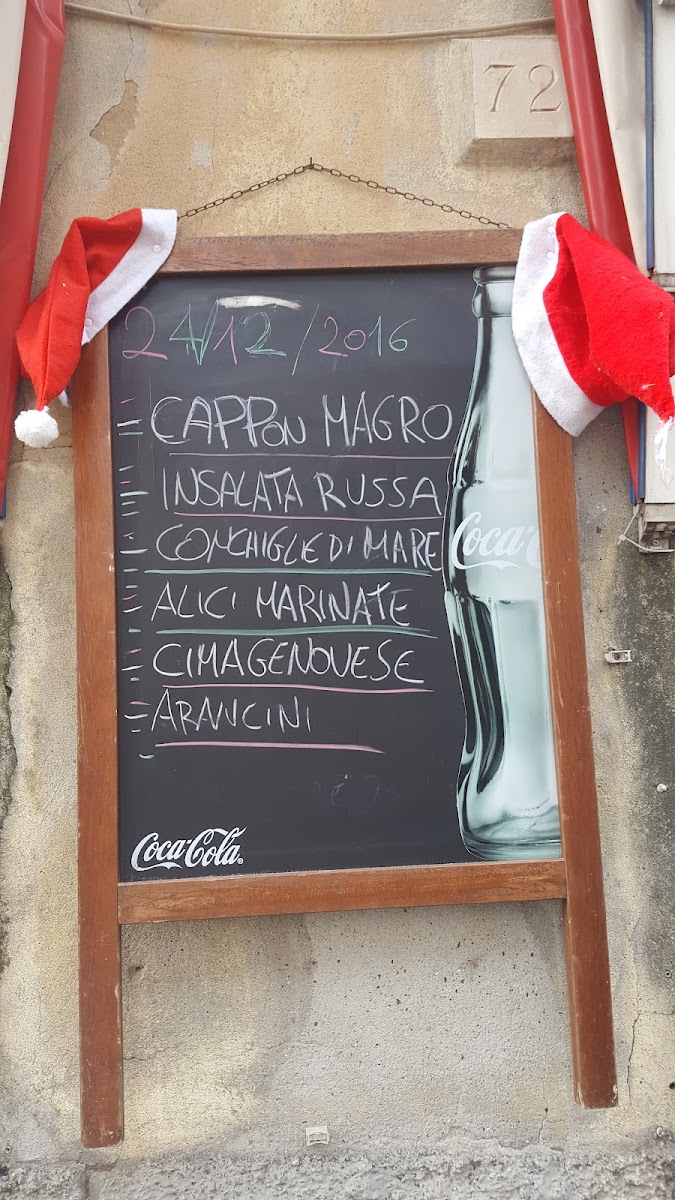 72
24/12/2016
CAPPON MAGRO
INSALATA RUSSA
CONCHIGLIE DI MARE
Coca-C
ALICI MARINATE
CIMAGENOVESE
ARANCINI
Coca-Cola